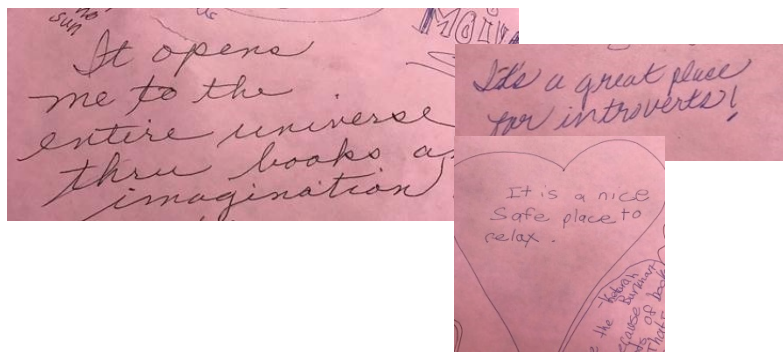 no
sun
us
It opens
me to the
entire universe
thru books a
imagination
It's a great place
for introverts!
It is a nice
Safe place to
relax.
the
ecause
of book
That